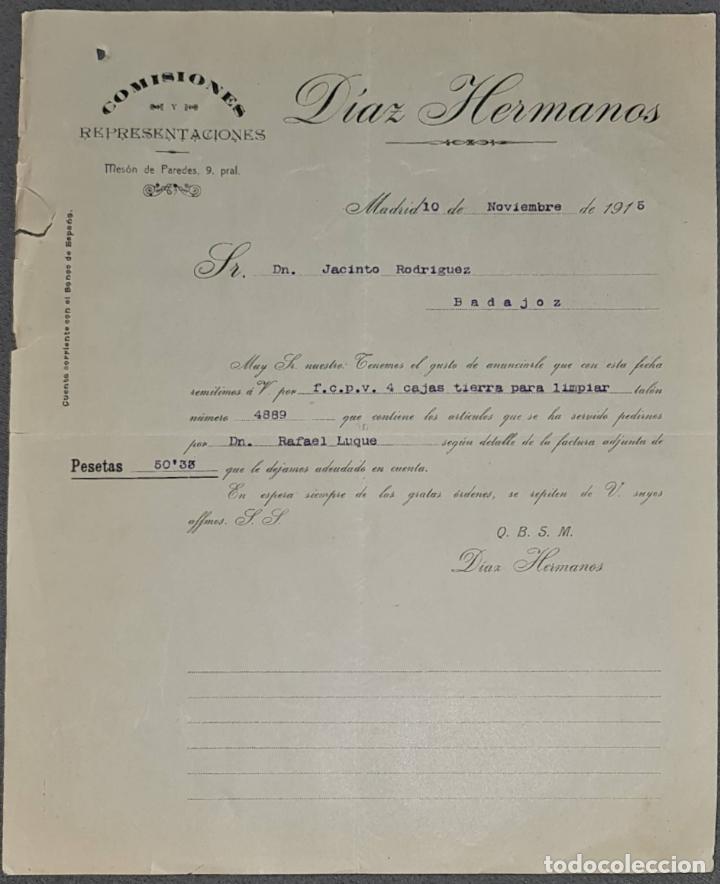 COMISIONES
Y
REPRESENTACIONES
Mesón de Paredes, 9, pral.
Díaz Hermanos
Madrid 10 de Noviembre de 1915
Sr. Dn. Jacinto Rodriguez
Badajoz
Cuenta corriente con el Banco de España.
Muy Sr. nuestro: Tenemos el gusto de anunciarle que con esta fecha
remitimos á V. por f.c.p.v. 4 cajas tierra para limpiar talón
número 4889 que contiene los artículos que se ha servido pedirnos
por Dn. Rafael Luque según detalle de la factura adjunta de
Pesetas 50'33 que le dejamos adeudado en cuenta.
En espera siempre de las gratas órdenes, se repiten de V. suyos
affmos. S. S.
Q. B. S. M.
Díaz Hermanos
todocoleccion